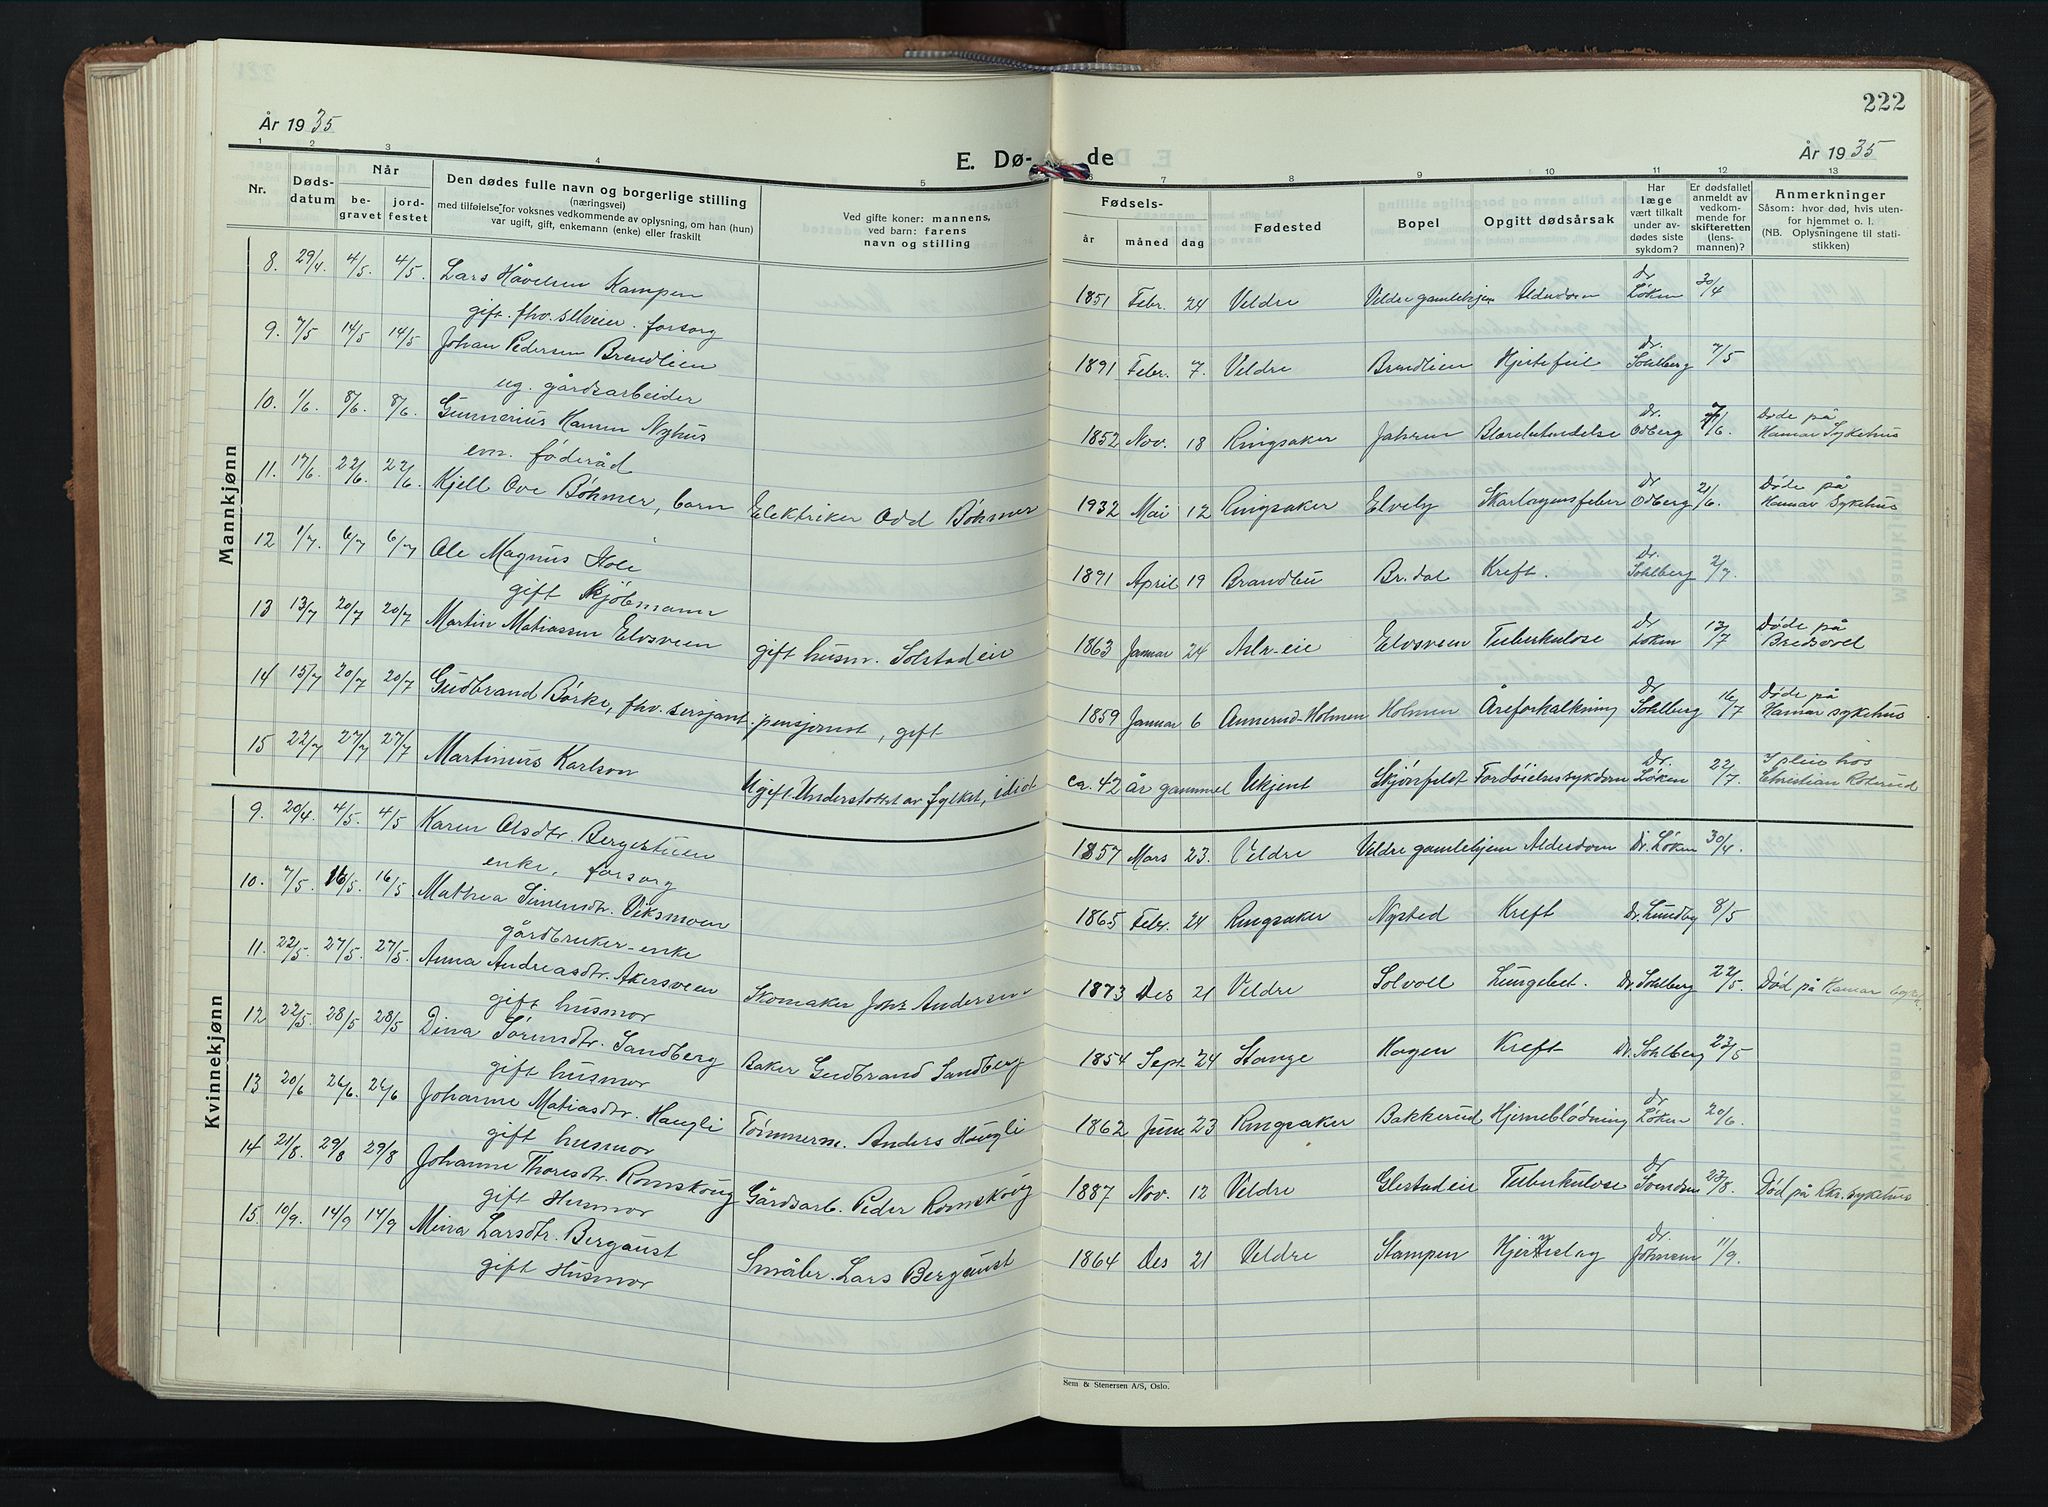 222
År 1935
E. Dø- de
År 1935
1 2 3 4 5 6 7 8 9 10 11 12 13
Nr.
Døds-
datum
Når
be-
gravet
jord-
festet
Den dødes fulle navn og borgerlige stilling
(næringsvei)
med tilføielse for voksnes vedkommende av oplysning, om han (hun)
var ugift, gift, enkemann (enke) eller fraskilt
Ved gifte koner: mannens,
ved barn: farens
navn og stilling
Fødsels-
år måned dag
Fødested
Bopel
Opgitt dødsårsak
Har
læge
vært tilkalt
under av-
dødes siste
sykdom?
Er dødsfallet
anmeldt av
vedkom-
mende for
skifteretten
(lens-
mannen)?
Anmerkninger
Såsom: hvor død, hvis uten-
for hjemmet o. l.
(NB. Oplysningene til stati-
stikken)
Mannkjønn
8. 29/4. 4/5. 4/5. Lars Håvelsen Kampen
gift. fhv. selveier. forsorg
1851 Febr. 24 Veldre Veldre gamlehjem Alderdom Dr. Løken 30/4
9. 7/5 14/5 14/5 Johan Pedersen Brendlien
ug. gårdsarbeider
1891 Febr. 7. Veldre Brendlien Hjertefeil Dr. Sohlberg 7/5
10. 1/6. 8/6. 8/6. Gunnerius Hansen Nyhus
em. föderåd
1852 Nov. 18 Ringsaker Jahren Blærebetendelse Dr. Odberg 7/6. Døde på
Hamar Sykehus
11. 17/6. 22/6. 22/6. Kjell Ove Böhmer, barn Elektriker Odd Böhmer
1932 Mai 12 Ringsaker Elveby Skarlagensfeber Dr Odberg 21/6. Døde på
Hamar Sykehus
12 1/7. 6/7 6/7 Ole Magnus Hole
gift Kjöbmann
1891 April 19 Brandbu Br.dal Kreft. Dr. Sohlberg 2/7
13 13/7 20/7 20/7 Martin Matiassen Elvsveen gift husm. Solstadeie
1863 Januar 24 Aslr-eie Elvsveen Tuberkulose Dr Løken 17/7 Døde på
Bredsvol
14 15/7 20/7 20/7 Gudbrand Börke, fhv. sersjant. pensjonist, gift
1859 Januar 6 Annerud-Holmen Holmen Åreforkalkning Dr Sohlberg 16/7 Døde på
Hamar sykehus
15 22/7 27/7 27/7 Martinius Karlson Ugift. Understöttet av fylket, idiot
ca. 42 år gammel Ukjent Skjönfeldt Fordöielsessykdom Dr. Løken 22/7. I pleie hos
Christian Roterud
Kvinnekjønn
9. 29/4. 4/5. 4/5 Karen Olsdtr. Bergestuen
enke, forsorg
1857 Mars 23. Veldre Veldre gamlehjem Alderdom Dr. Løken 30/4.
10. 7/5. 16/5. 16/5 Mathea Simensdtr. Viksmoen
gårdbruker-enke
1865 Febr. 24 Ringsaker Nysted Kreft Dr. Lundby 8/5
11. 22/5. 27/5. 27/5. Anna Andreasdtr. Akersveen
gift husmor
Skomaker Johs Andersen
1873 Des 21 Veldre Solvoll Lungebet. Dr. Sohlberg 22/5. Død på Hamar sykeh.
12 22/5. 28/5 28/5 Dina Sörensdtr. Sandberg
gift husmor
Baker Gudbrand Sandberg
1854 Sept. 24 Stange Hagen Kreft Dr. Sohlberg 23/5
13 20/6 26/6. 26/6 Johanne Matiasdtr. Haugli
gift husmor
Tömmerm. Anders Haugli
1862 Juni 23 Ringsaker Bakkerud Hjerneblödning Dr Løken 20/6.
14 21/8. 29/8 29/8 Johanne Thoresdtr. Romskoug
gift Husmor
Gårdsarb. Peder Romskoug
1887 Nov. 12 Veldre Glestadeie Tuberkulose Dr Svendsen 23/8. Død på Rkr. sykehus
15 10/9. 14/9 14/9 Mina Larsdtr. Bergaust
gift Husmor
Småbr. Lars Bergaust
1864 Des 21 Veldre Stampen Hjerteslag Dr. Johnsen 11/9.
Sem & Stenersen A/S, Oslo.